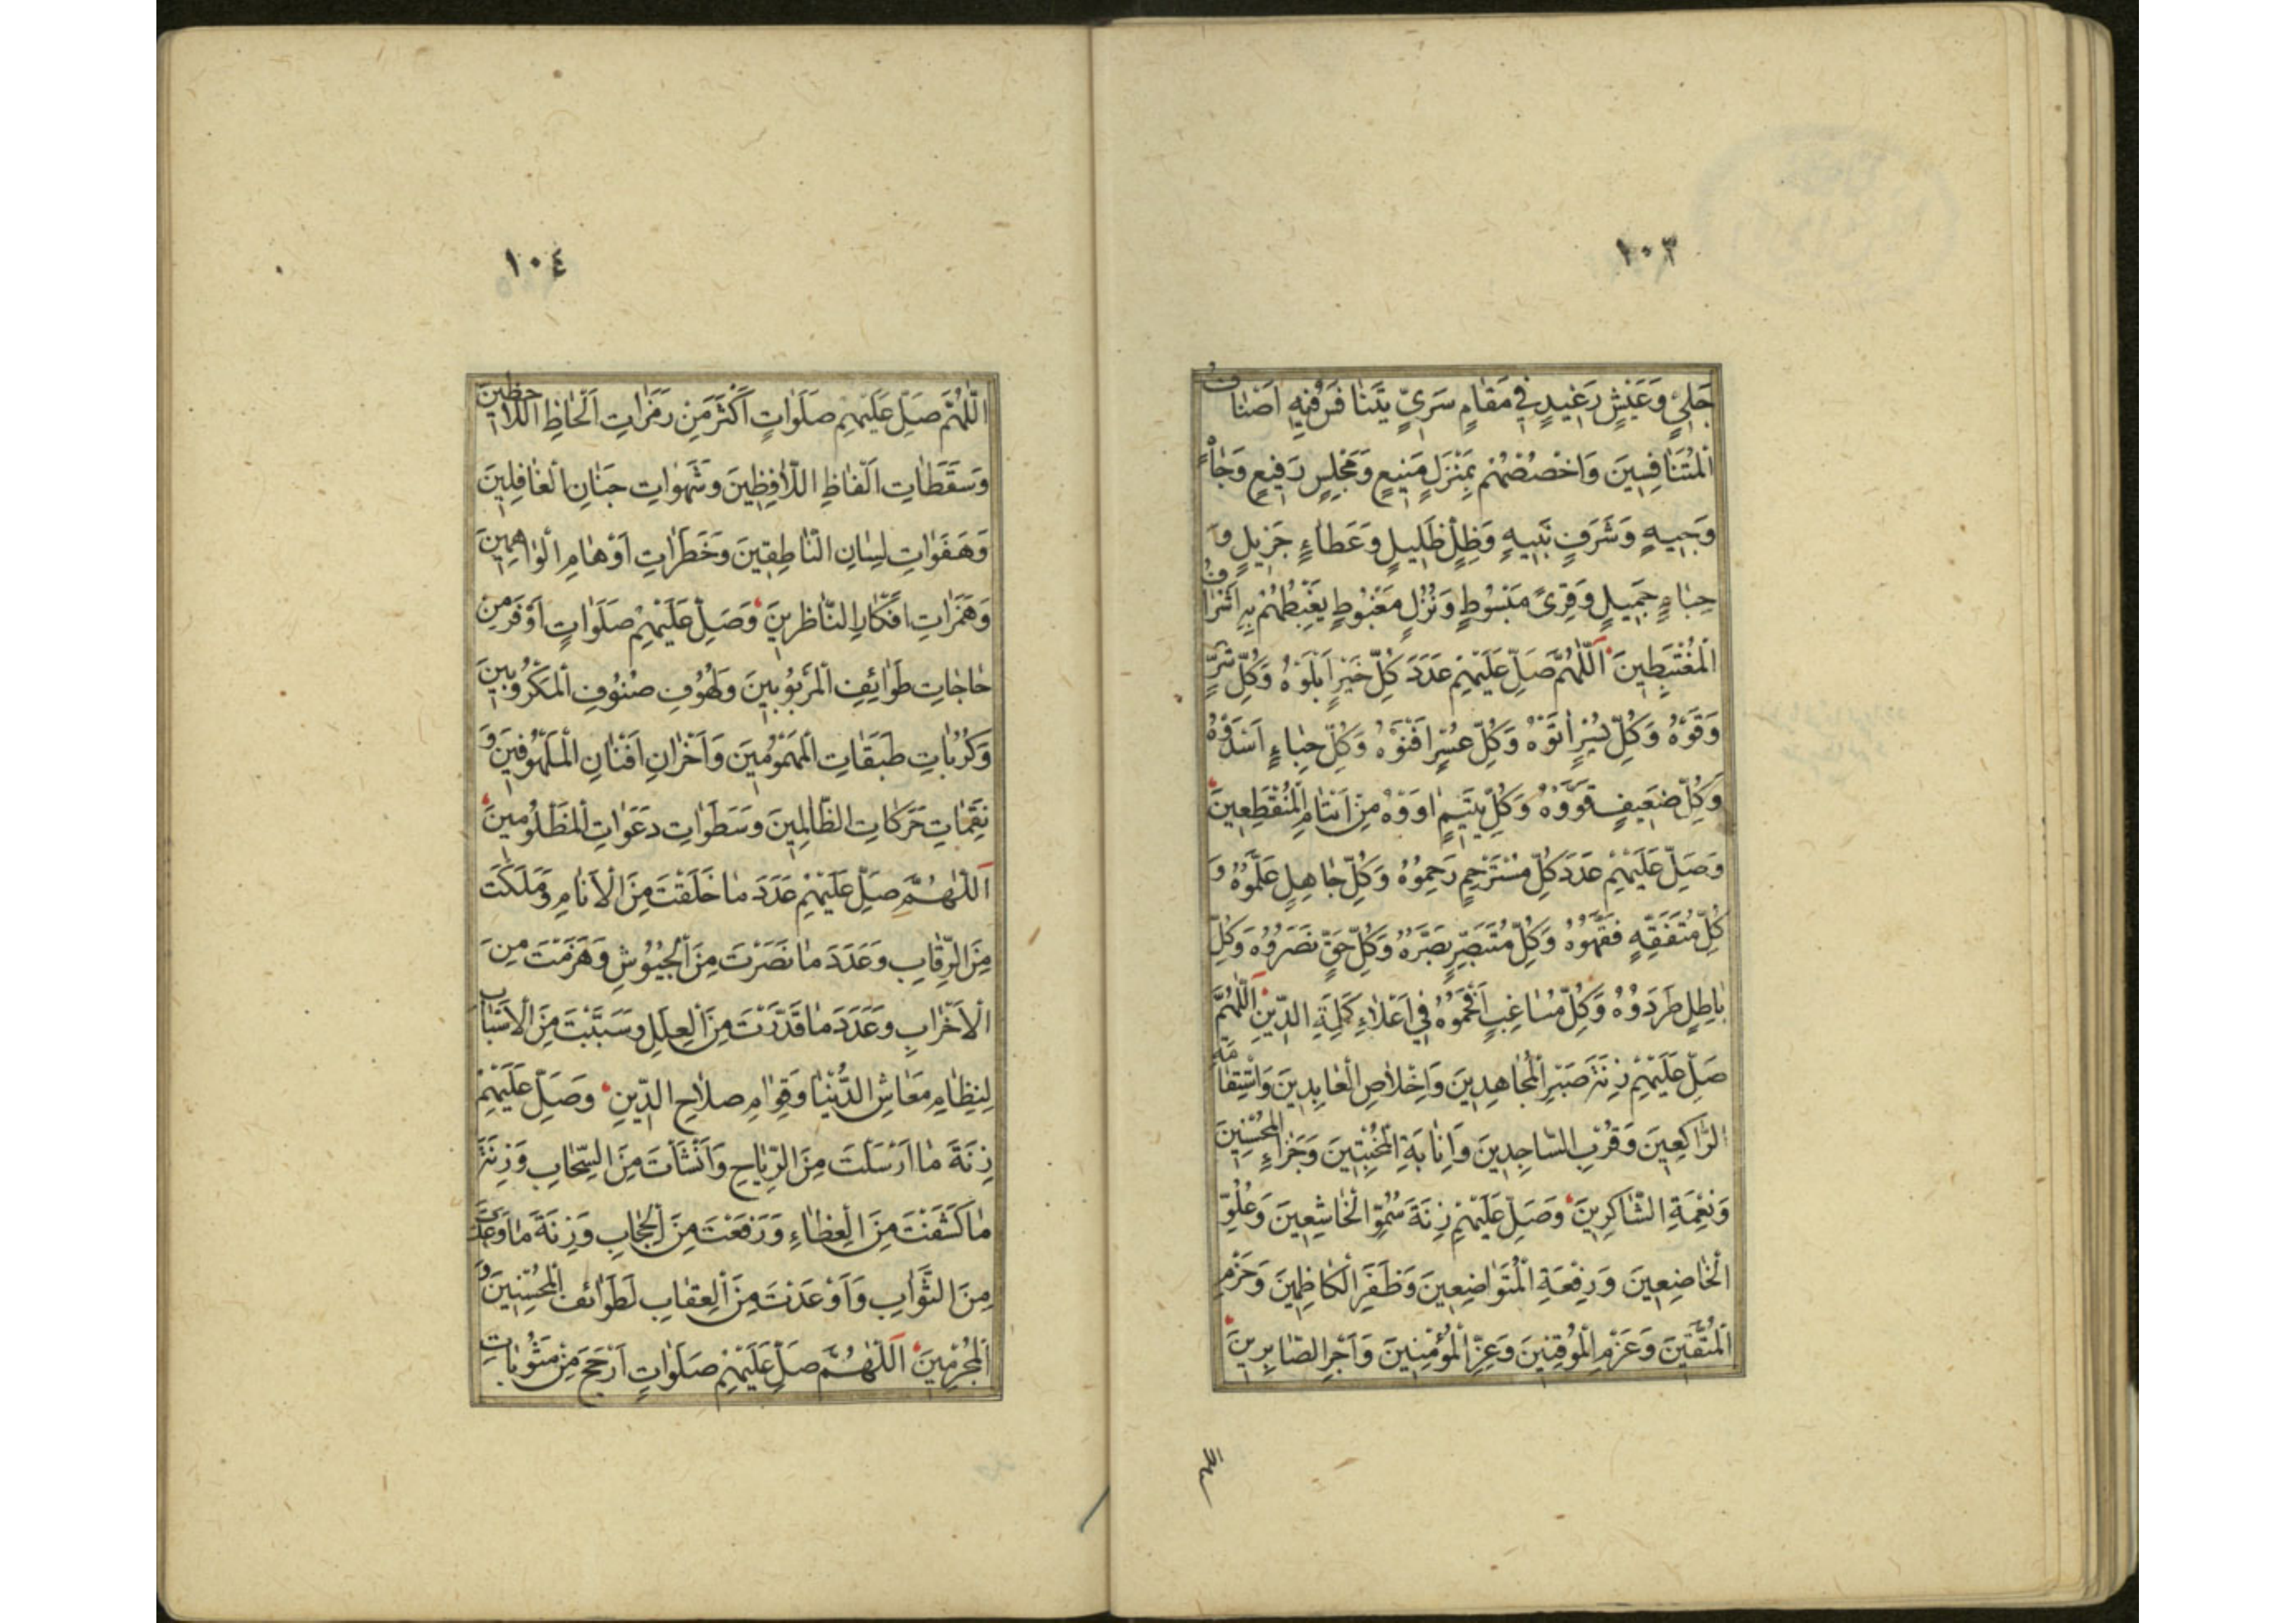 ١٠٣
جَلِيٍّ وَعَيْشٍ رَغِيدٍ فِي مَقَامٍ سَرِيٍّ يَتَنَافَسُ فِيهِ اَصْنَافُ
الْمُتَنَافِسِينَ وَاخْصُصْهُمْ بِمَنْزِلٍ مَنِيعٍ وَمَجْلِسٍ رَفِيعٍ وَجَاهٍ
وَجِيهٍ وَشَرَفٍ نَبِيهٍ وَظِلٍّ ظَلِيلٍ وَعَطَاءٍ جَزِيلٍ وَ
حِبَاءٍ جَمِيلٍ وَقِرىً مَبْسُوطٍ وَنُزُلٍ مَغْبُوطٍ يَغْبِطُهُمْ بِهِ اَشْرَافُ
الْمُغْتَبِطِينَ اَللّٰهُمَّ صَلِّ عَلَيْهِمْ عَدَدَ كُلِّ خَيْرٍ اَبْلَوْهُ وَكُلِّ شَرٍّ
وَقَوْهُ وَكُلِّ يُسْرٍ اٰتَوْهُ وَكُلِّ عُسْرٍ اَفْنَوْهُ وَكُلِّ حِبَاءٍ اَسْدَوْهُ
وَكُلِّ ضَعِيفٍ قَوَّوْهُ وَكُلِّ يَتِيمٍ اٰوَوْهُ مِنْ اَيْتَامِ الْمُنْقَطِعِينَ
وَصَلِّ عَلَيْهِمْ عَدَدَ كُلِّ مُسْتَرْحِمٍ رَحِمُوهُ وَكُلِّ جَاهِلٍ عَلَّمُوهُ وَ
كُلِّ مُتَفَقِّهٍ فَقَّهُوهُ وَكُلِّ مُتَبَصِّرٍ بَصَّرُهُ وَكُلِّ حَقٍّ نَصَرُوُهُ وَكُلِّ
بَاطِلٍ طَرَدُوُهُ وَكُلِّ مُشَاغِبٍ اَفْحَمُوُهُ فِي اَعْلَاءِ كَلِمَةِ الدِّينِ اَللّٰهُمَّ
صَلِّ عَلَيْهِمْ زِنَةَ صَبْرِ الْمُجَاهِدِينَ وَاِخْلَاصِ الْعَابِدِينَ وَاسْتِقَامَةِ
الرَّاكِعِينَ وَقُرْبِ السَّاجِدِينَ وَاِنَابَةِ الْمُخْبِتِينَ وَجَزَاءِ الْمُحْسِنِينَ
وَنِعْمَةِ الشَّاكِرِينَ وَصَلِّ عَلَيْهِمْ زِنَةَ سُمُوِّ الْخَاشِعِينَ وَعُلُوِّ
الْخَاضِعِينَ وَرِفْعَةِ الْمُتَوَاضِعِينَ وَظَفَرِ الْكَاظِمِينَ وَحَزْمِ
الْمُتَّقِينَ وَعَزْمِ الْمُوقِنِينَ وَعِزِّ الْمُؤْمِنِينَ وَاَجْرِ الصَّابِرِينَ
اللهم
١٠٤
اَللّٰهُمَّ صَلِّ عَلَيْهِمْ صَلَوَاتٍ اَكْثَرَ مِنْ رَمَزَاتِ اَلْحَاظِ اللَّاحِظِينَ
وَسَقَطَاتِ اَلْفَاظِ اللَّافِظِينَ وَشَهَوَاتِ جَنَانِ الْغَافِلِينَ
وَهَفَوَاتِ لِسَانِ النَّاطِقِينَ وَخَطَرَاتِ اَوْهَامِ الْوَاهِمِينَ
وَهَمَزَاتِ اَفْكَارِ النَّاظِرِينَ وَصَلِّ عَلَيْهِمْ صَلَوَاتٍ اَوْفَرَ مِنْ
حَاجَاتِ طَوَائِفِ الْمَرْبُوبِينَ وَلُهُوفِ صُنُوفِ الْمَكْرُوبِينَ
وَكُرُبَاتِ طَبَقَاتِ الْمَهْمُومِينَ وَاَحْزَانِ اَفْنَانِ الْمَلْهُوفِينَ وَ
نِقَمَاتِ حَرَكَاتِ الظَّالِمِينَ وَسَطَوَاتِ دَعَوَاتِ الْمَظْلُومِينَ
اَللّٰهُمَّ صَلِّ عَلَيْهِمْ عَدَدَ مَا خَلَقْتَ مِنَ الْاَنَامِ وَمَلَكْتَ
مِنَ الرِّقَابِ وَعَدَدَ مَا نَصَرْتَ مِنَ الْجُيُوشِ وَهَزَمْتَ مِنَ
الْاَحْزَابِ وَعَدَدَ مَا قَدَّرْتَ مِنَ الْعِلَلِ وَسَبَّبْتَ مِنَ الْاَسْبَابِ
لِنِظَامِ مَعَاشِ الدُّنْيَا وَقِوَامِ صَلَاحِ الدِّينِ وَصَلِّ عَلَيْهِمْ
زِنَةَ مَا اَرْسَلْتَ مِنَ الرِّيَاحِ وَاَنْشَأْتَ مِنَ السَّحَابِ وَزِنَةَ
مَا كَشَفْتَ مِنَ الْغِطَاءِ وَرَفَعْتَ مِنَ الْحِجَابِ وَزِنَةَ مَا وَعَدْتَ
مِنَ الثَّوَابِ وَاَوْعَدْتَ مِنَ الْعِقَابِ لِطَوَائِفِ الْمُحْسِنِينَ وَ
الْمُجْرِمِينَ اَللّٰهُمَّ صَلِّ عَلَيْهِمْ صَلَوَاتٍ اَرْجَحَ مِنْ مَثُوبَاتِ